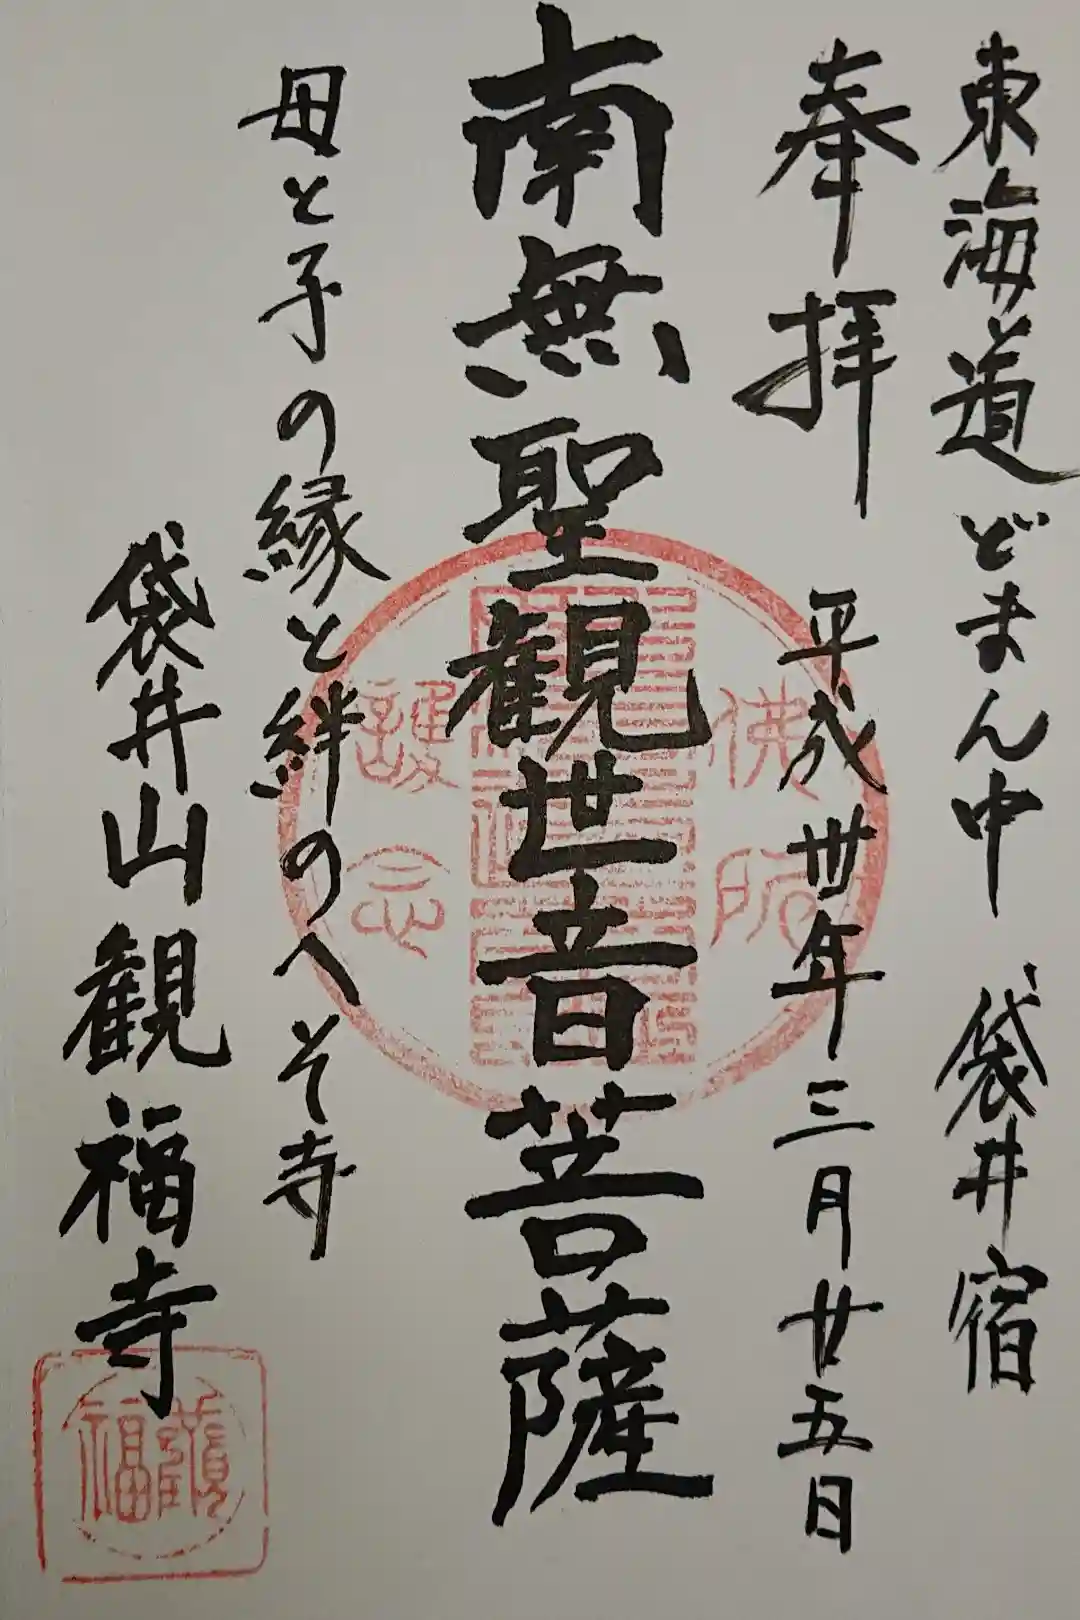 東海道どまん中 袋井宿
奉拝 平成卅年三月廿五日
南無聖観世音菩薩
母と子の縁と絆のへそ寺
袋井山観福寺
佛
護念
觀福